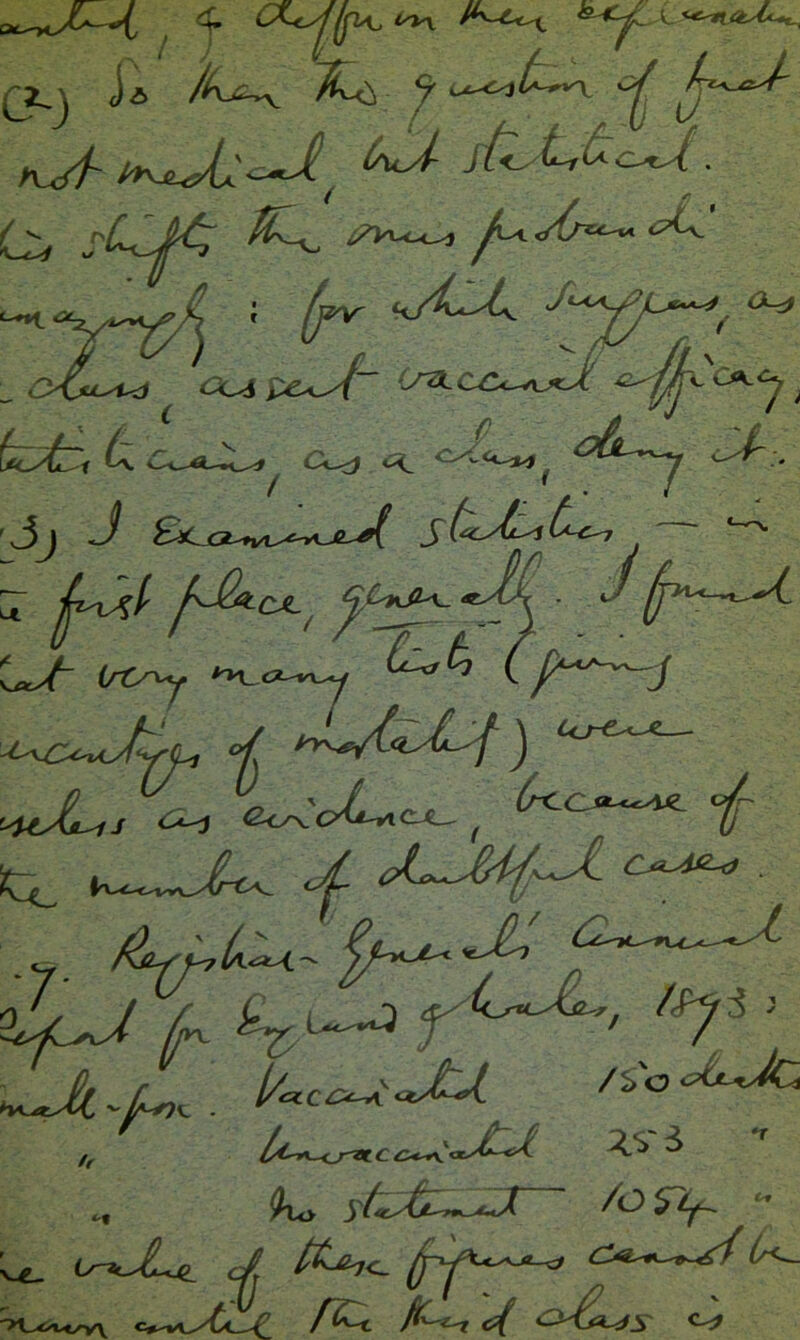 , & differ in their
(2) So then the question of fact
not medical, but statistical.
shifts the onus probandi
: for while Surgeons, as
class, assert vaccinal efficacy,
as a class, deny it.
(3) I examined statistics, — in
first place, generally. I found
very many lists (
of mortality) were
useless as evidence, because of
number of doubtful cases.
.g. Registrar General's Annual
Report for England & Wales, 1893:
small-pox. Vaccinated 150 deaths
" Unvaccinated 253 "
" No statement 1054 "
value of these figures cannot be
known until the third class is